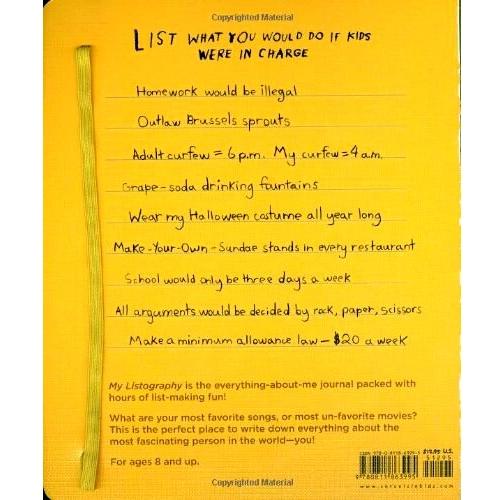 Copyrighted Material
LIST WHAT YOU WOULD DO IF KIDS
WERE IN CHARGE
Homework would be illegal
Outlaw Brussels sprouts
Adult curfew = 6 p.m. My curfew = 4 a.m.
Grape-soda drinking fountains
Wear my Halloween costume all year long
Make-Your-Own-Sundae stands in every restaurant
School would only be three days a week
All arguments would be decided by rock, paper, scissors
Make a minimum allowance law - $20 a week
My Listography is the everything-about-me journal packed with
hours of list-making fun!
What are your most favorite songs, or most un-favorite movies?
This is the perfect place to write down everything about the
most fascinating person in the world—you!
For ages 8 and up.
$12.95 U.S.
51295
9780811863995
Copyrighted Material